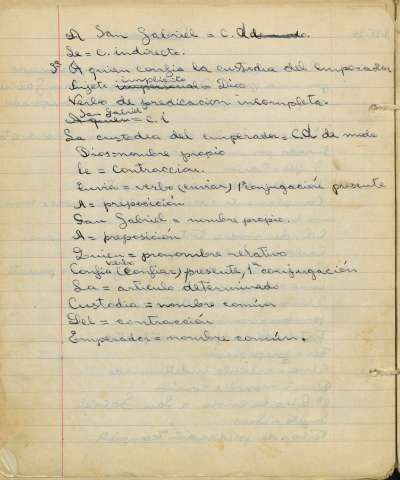 A San Gabriel = C. d
Le = c. indirecto.
3ª A quien confia la custodia del emperador
Sujeto implicito Dios
Verbo de predicacion incompleta.
San Gabriel
A quien = C. i
La custodia del emperador = C. d de modo
Dios = nombre propio
Le = Contraccion.
Envia = verbo (enviar) 1ª conjugación presente
A = preposición
San Gabriel = nombre propio.
A = preposición
Quien = pronombre relativo
verbo
Confia (confiar) presente, 1ª conjugación
La = articulo determinado
Custodia = nombre común
Del = contracción
Emperador = nombre común.